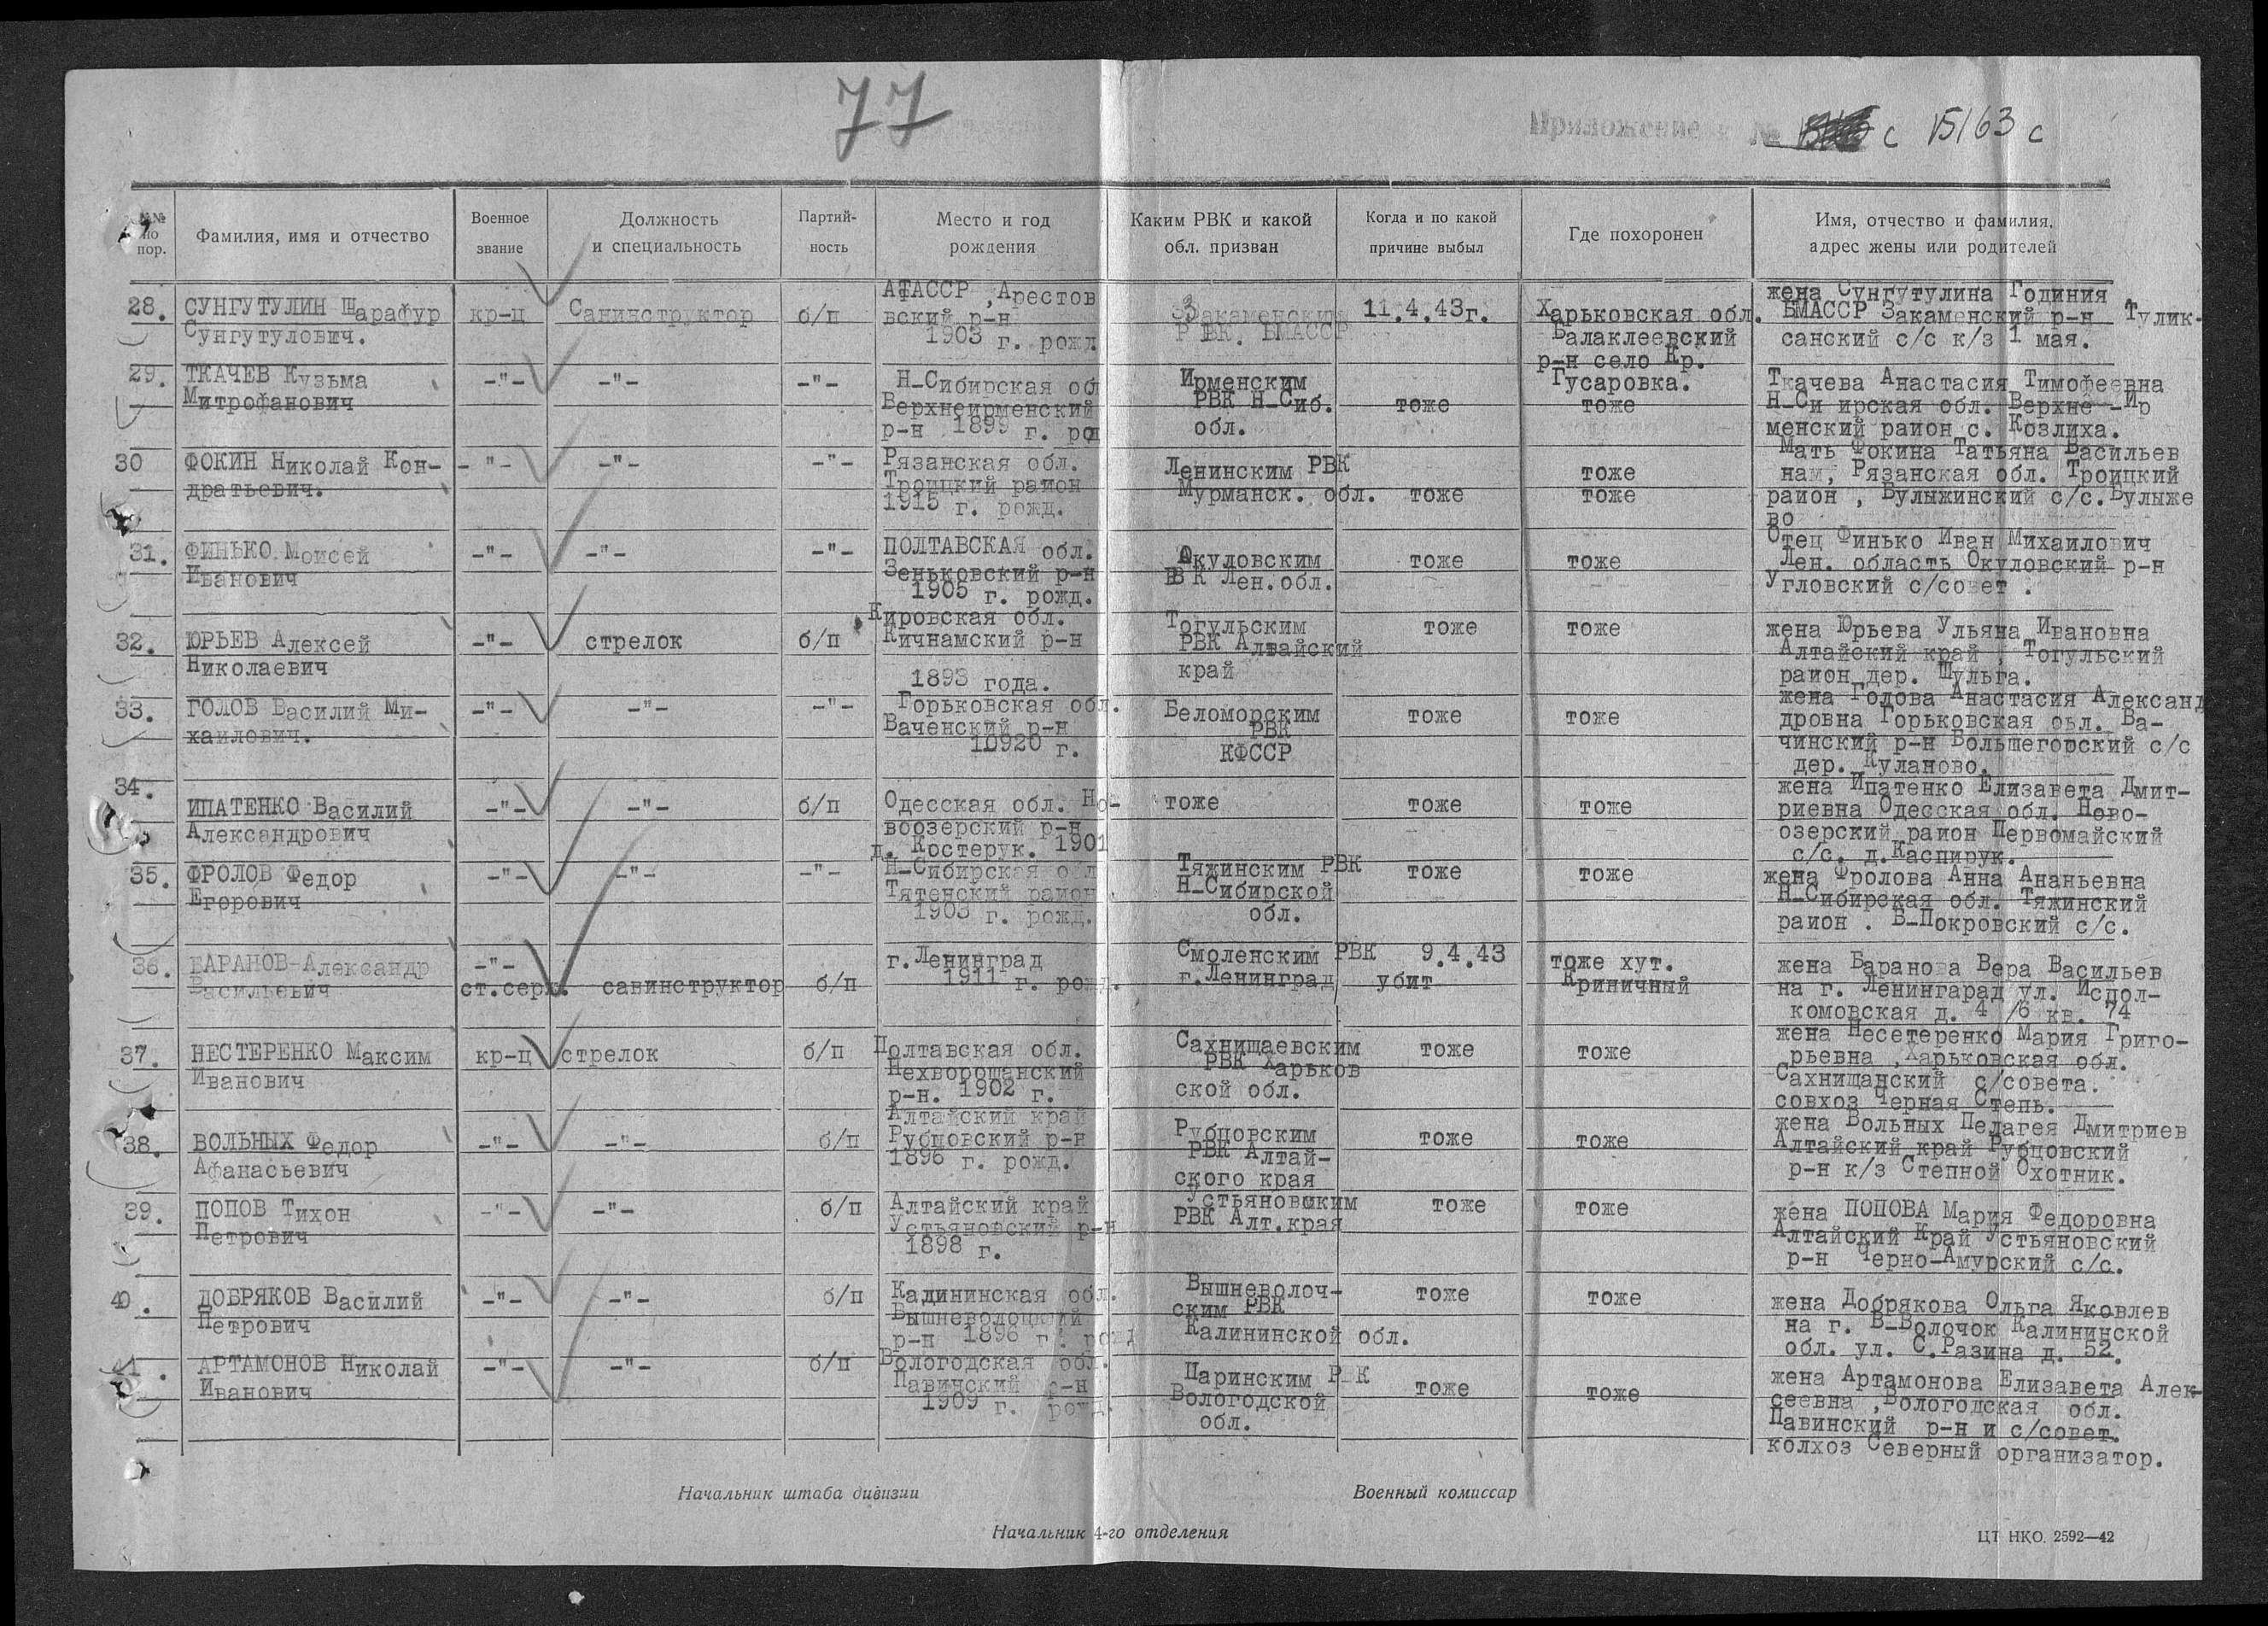 77
Приложение № с 15163 с
№№ по пор.
Фамилия, имя и отчество
Военное звание
Должность и специальность
Партий-ность
Место и год рождения
Каким РВК и какой обл. призван
Когда и по какой причине выбыл
Где похоронен
Имя, отчество и фамилия, адрес жены или родителей
28. СУНГУТУЛИН Шарафур
Сунгутулович.
кр-ц
Санинструктор
б/п
АТАССР, Арестов
вский р-н
1903 г. рожд
Закаменским
РВК. БМАССР
11.4.43г.
Харьковская обл.
Балаклеевский
р-н село Кр.
Гусаровка.
жена Сунгутулина Годиния
БМАССР Закаменский р-н Тулик-
санский с/с к/з 1 мая.
29. ТКАЧЕВ Кузьма
Митрофанович
-"-
-"-
-"-
Н-Сибирская об
Верхнеирменский
р-н 1899 г. род
Ирменским
РВК Н-Сиб.
обл.
тоже
тоже
Ткачева Анастасия Тимофеевна
Н-Си ирская обл. Верхне -Ир
менский район с. Козлиха.
30 ФОКИН Николай Кон-
дратьевич.
-"-
-"-
-"-
Рязанская обл.
Троицкий район
1915 г. рожд.
Ленинским РВК
Мурманск. обл.
тоже
тоже
тоже
Мать Фокина Татьяна Васильев
нам, Рязанская обл. Троицкий
район , Булыжинский с/с. Булыже
во
31. ФИНЬКО Моисей
Иванович
-"-
-"-
-"-
ПОЛТАВСКАЯ обл.
Зеньковский р-н
1905 г. рожд.
Окуловским
РВК Лен.обл.
тоже
тоже
Отец Финько Иван Михаилович
Лен. область Окуловский р-н
Угловский с/совет .
32. ЮРЬЕВ Алексей
Николаевич
-"-
стрелок
б/п
Кировская обл.
Кичнамский р-н
1893 года.
Тогульским
РВК Алтайский
край
тоже
тоже
жена Юрьева Ульяна Ивановна
Алтайский край , Тогульский
район дер. Шульга.
33. ГОЛОВ Василий Ми-
хаилович.
-"-
-"-
-"-
Горьковская обл.
Ваченский р-н
10920 г.
Беломорским
РВК
КФССР
тоже
тоже
жена Годова Анастасия Александ
дровна Горьковская обл. Ва-
чинский р-н Большегорский с/с
дер. Куланово.
34.
ИПАТЕНКО Василий
Александрович
-"-
-"-
б/п
Одесская обл. Но-
воозерский р-н
д. Костерук. 1901
тоже
тоже
тоже
жена Ипатенко Елизавета Дмит-
риевна Одесская обл. Ново-
озерский район Первомайский
с/с. д.Каспирук.
35. ФРОЛОВ Федор
Егорович
-"-
-"-
-"-
Н-Сибирская обл
Тятенский район
1903 г. рожд.
Тяжинским РВК
Н-Сибирской
обл.
тоже
тоже
жена Фролова Анна Ананьевна
Н-Сибирская обл. Тяжинский
район . Б-Покровский с/с.
36. БАРАНОВ-Александр
Васильевич
-"-
ст.серж.
савинструктор
б/п
г.Ленинград
1911 г. рожд.
Смоленским РВК
г.Ленинград
9.4.43
убит
тоже хут.
Криничный
жена Баранова Вера Васильев
на г. Ленингарад ул. Испол-
комовская д. 4 /6 кв. 74
37. НЕСТЕРЕНКО Максим
Иванович
кр-ц
стрелок
б/п
Полтавская обл.
Нехворощанский
р-н. 1902 г.
Сахнищаевским
РВК Харьков
ской обл.
тоже
тоже
жена Несетеренко Мария Григо-
рьевна , Харьковская обл.
Сахнищанский с/совета.
совхоз Черная Степь.
38. ВОЛЬНЫХ Федор
Афанасьевич
-"-
-"-
б/п
Алтайский край
Рубцовский р-н
1896 г. рожд.
Рубцовским
РВК Алтай-
ского края
тоже
тоже
жена Вольных Пелагея Дмитриев
Алтайский край Рубцовский
р-н к/з Степной Охотник.
39. ПОПОВ Тихон
Петрович
-"-
-"-
б/п
Алтайский край
Устьяновский р-н
1898 г.
Устьяновским
РВК Алт.края
тоже
тоже
жена ПОПОВА Мария Федоровна
Алтайский Край Устьяновский
р-н Черно-Амурский с/с.
40. ДОБРЯКОВ Василий
Петрович
-"-
-"-
б/п
Кадининская обл.
Вышневолоцкий
р-н 1896 г. рожд
Вышневолоч-
ским РВК
Калининской обл.
тоже
тоже
жена Добрякова Ольга Яковлев
на г. В-Волочок Калининской
обл. ул. С.Разина д. 52.
41. АРТАМОНОВ Николай
Иванович
-"-
-"-
б/п
Вологодская обл.
Павинский р-н
1909 г. рожд.
Паринским РВК
Вологодской
обл.
тоже
тоже
жена Артамонова Елизавета Алек-
сеевна ,Вологодская обл.
Павинский р-н и с/совет.
колхоз Северный организатор.
Начальник штаба дивизии
Военный комиссар
Начальник 4-го отделения
ЦТ НКО. 2592—42